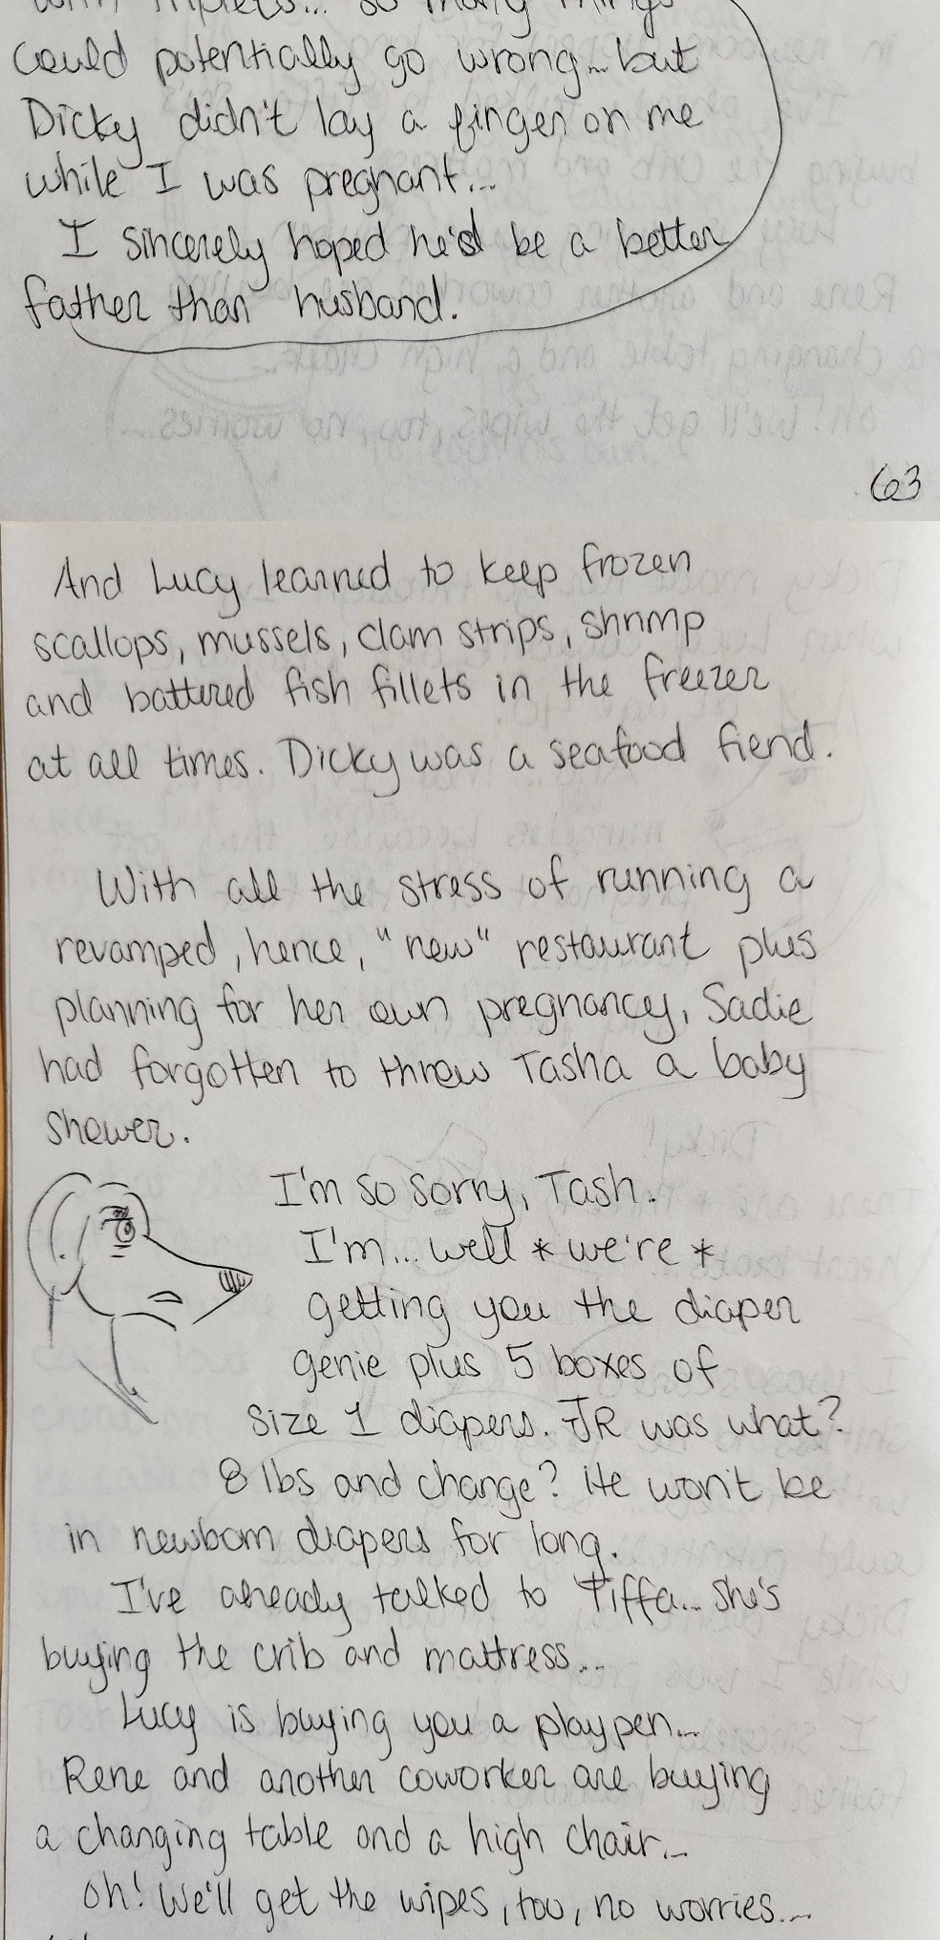 with triplets... so many things
could potentially go wrong... but
Dicky didn't lay a finger on me
while I was pregnant...
I sincerely hoped he'd be a better
father than husband.
63
And Lucy learned to keep frozen
scallops, mussels, clam strips, shrimp
and battered fish fillets in the freezer
at all times. Dicky was a seafood fiend.
With all the stress of running a
revamped, hence, "new" restaurant plus
planning for her own pregnancy, Sadie
had forgotten to throw Tasha a baby
shower.
I'm so sorry, Tash.
I'm... well *we're*
getting you the diaper
genie plus 5 boxes of
size 1 diapers. JR was what?
8 lbs and change? He won't be
in newborn diapers for long.
I've already talked to Tiffa... she's
buying the crib and mattress...
Lucy is buying you a playpen...
Rene and another coworker are buying
a changing table and a high chair...
Oh! We'll get the wipes, too, no worries...